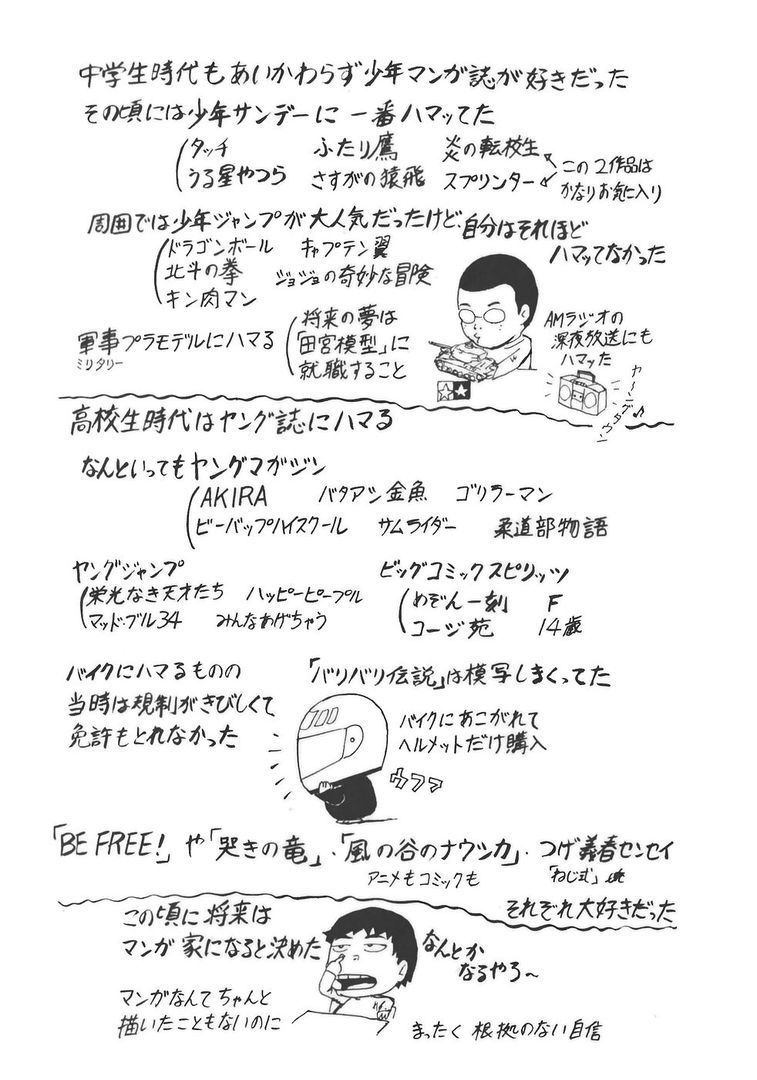 中学生時代もあいかわらず少年マンガ誌が好きだった
その頃には少年サンデーに一番ハマッてた
タッチ ふたり鷹 炎の転校生
うる星やつら さすがの猿飛 スプリンター
この2作品は
かなりお気に入り
周囲では少年ジャンプが大人気だったけど、自分はそれほど
ハマッてなかった
ドラゴンボール キャプテン翼
北斗の拳 ジョジョの奇妙な冒険
キン肉マン
軍事プラモデルにハマる
ミリタリー
将来の夢は
「田宮模型」に
就職すること
AMラジオの
深夜放送にも
ハマッた
ヤーンダタン♪
高校生時代はヤング誌にハマる
なんといってもヤングマガジン
AKIRA バタアシ金魚 ゴリラーマン
ビーバップハイスクール サムライダー 柔道部物語
ヤングジャンプ
栄光なき天才たち ハッピーピープル
マッド★ブル34 みんなあげちゃう
ビッグコミックスピリッツ
めぞん一刻 F
コージ苑 14歳
バイクにハマるものの
当時は規制がきびしくて
免許もとれなかった
「バリバリ伝説」は模写しまくってた
バイクにあこがれて
ヘルメットだけ購入
ウフフ
「BE FREE!」や「哭きの竜」・「風の谷のナウシカ」・つげ義春センセイ
アニメもコミックも
「ねじ式」etc
それぞれ大好きだった
この頃に将来は
マンガ家になると決めた
なんとか
なるやろ〜
マンガなんてちゃんと
描いたこともないのに
まったく根拠のない自信